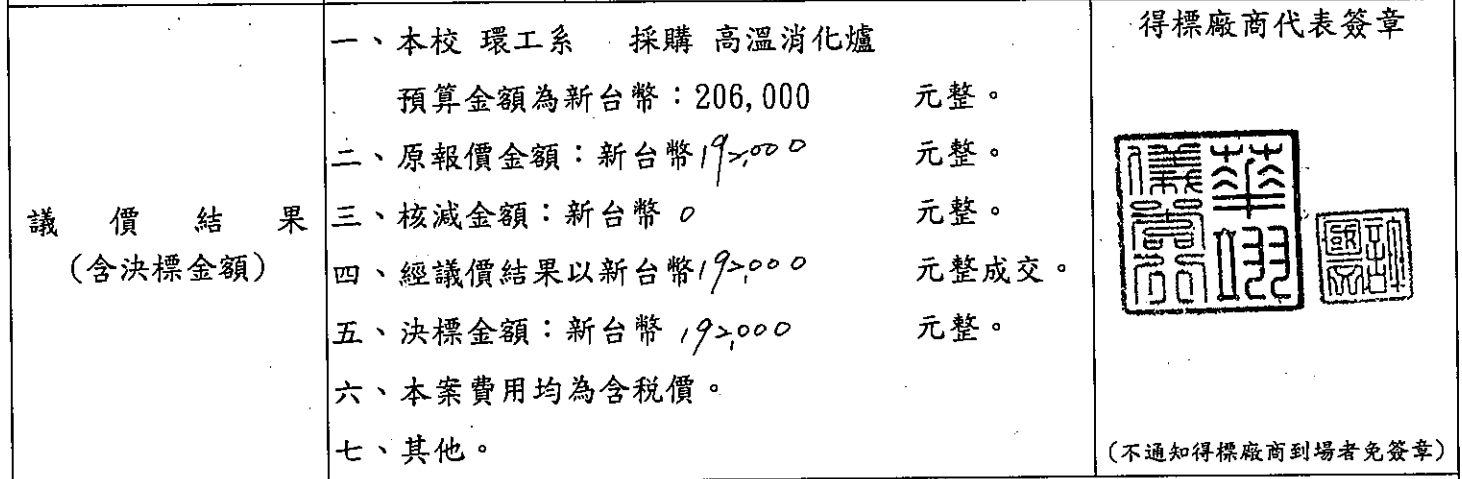 議價結果
(含決標金額)
一、本校 環工系 採購 高溫消化爐
預算金額為新台幣：206,000 元整。
二、原報價金額：新台幣192,000 元整。
三、核減金額：新台幣 0 元整。
四、經議價結果以新台幣192,000 元整成交。
五、決標金額：新台幣 192,000 元整。
六、本案費用均為含稅價。
七、其他。
得標廠商代表簽章
華翊
儀器行
(不通知得標廠商到場者免簽章)